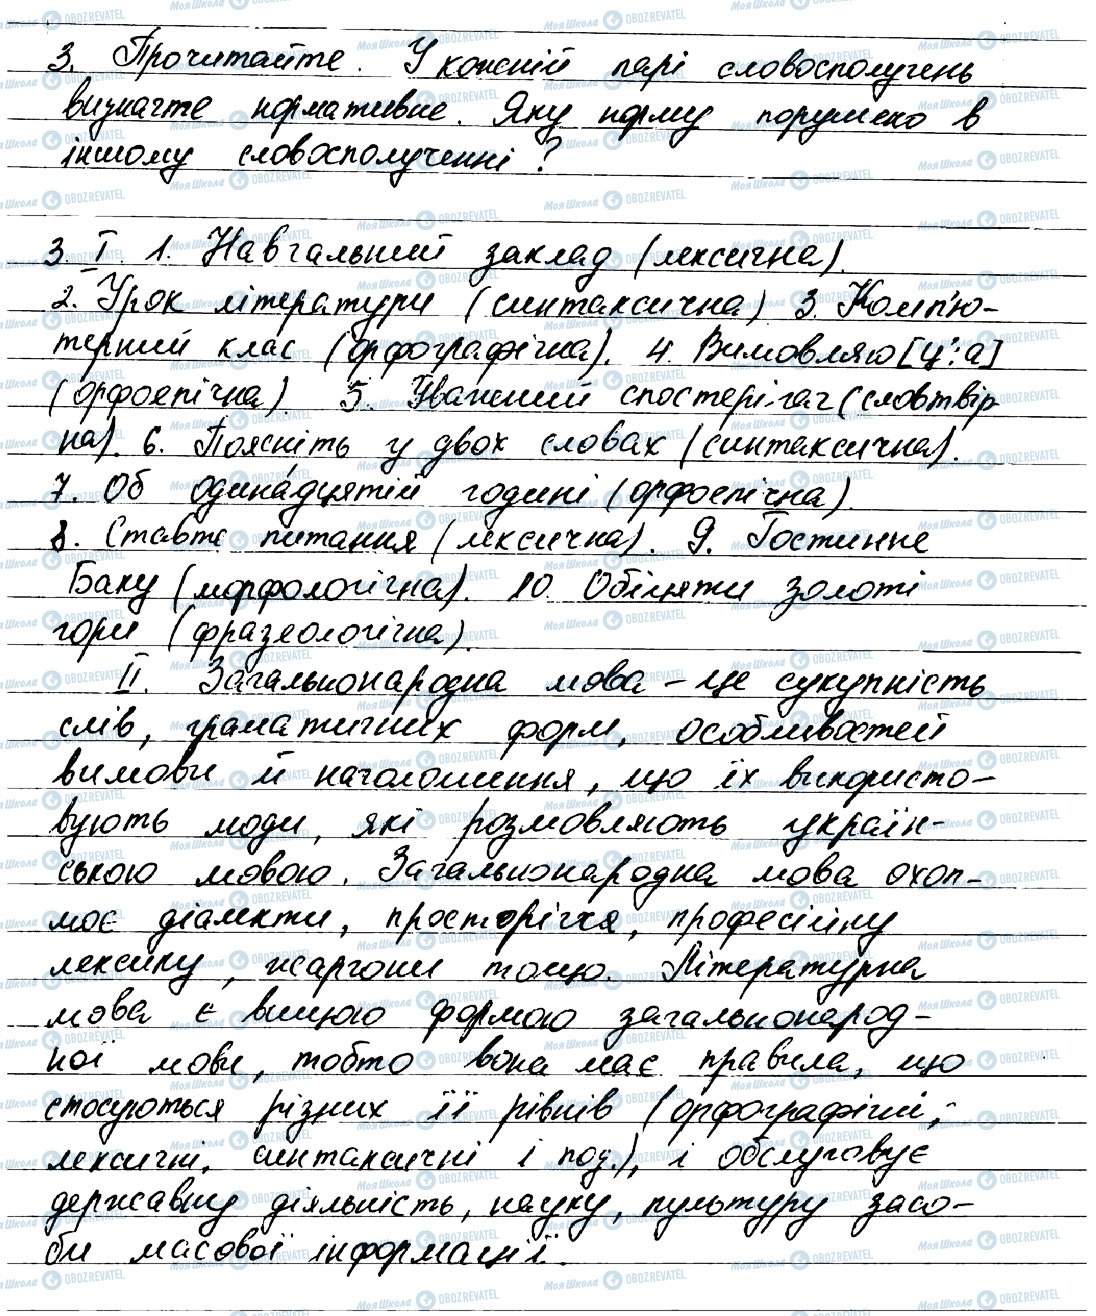 3. Прочитайте. У кожній парі словосполучень
визначте нормативне. Яку норму порушено в
іншому словосполученні?
3. I. 1. Навчальний заклад (лексична).
2. Урок літератури (синтаксична) 3. Комп'ю-
терний клас (орфографічна). 4. Вимовляю [ц':а]
(орфоепічна). 5. Уважний спостерігач (словтвір-
на). 6. Поясніть у двох словах (синтаксична).
7. Об одина́дцятій годині (орфоепічна).
8. Ставте питання (лексична). 9. Гостинне
Баку (морфологічна). 10. Обіцяти золоті
гори (фразеологічна).
II. Загальнонародна мова - це сукупність
слів, граматичних форм, особливостей
вимови й наголошення, що їх використо-
вують люди, які розмовляють україн-
ською мовою. Загальнонародна мова охоп-
лює діалекти, просторіччя, професійну
лексику, жаргони тощо. Літературна
мова є вищою формою загальнонарод-
ної мови, тобто вона має правила, що
стосуються різних її рівнів (орфографічні,
лексичні, синтаксичні і под.), і обслуговує
державну діяльність, науку, культуру засо-
би масової інформації.